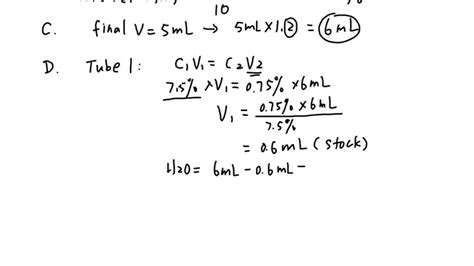 10
C. final V = 5mL → 5mL x 1.2 = 6mL
D. Tube 1: C₁V₁ = C₂V₂
7.5% x V₁ = 0.75% x 6mL
V₁ = 0.75% x 6mL
7.5%
= 0.6mL (stock)
H20 = 6mL - 0.6mL =